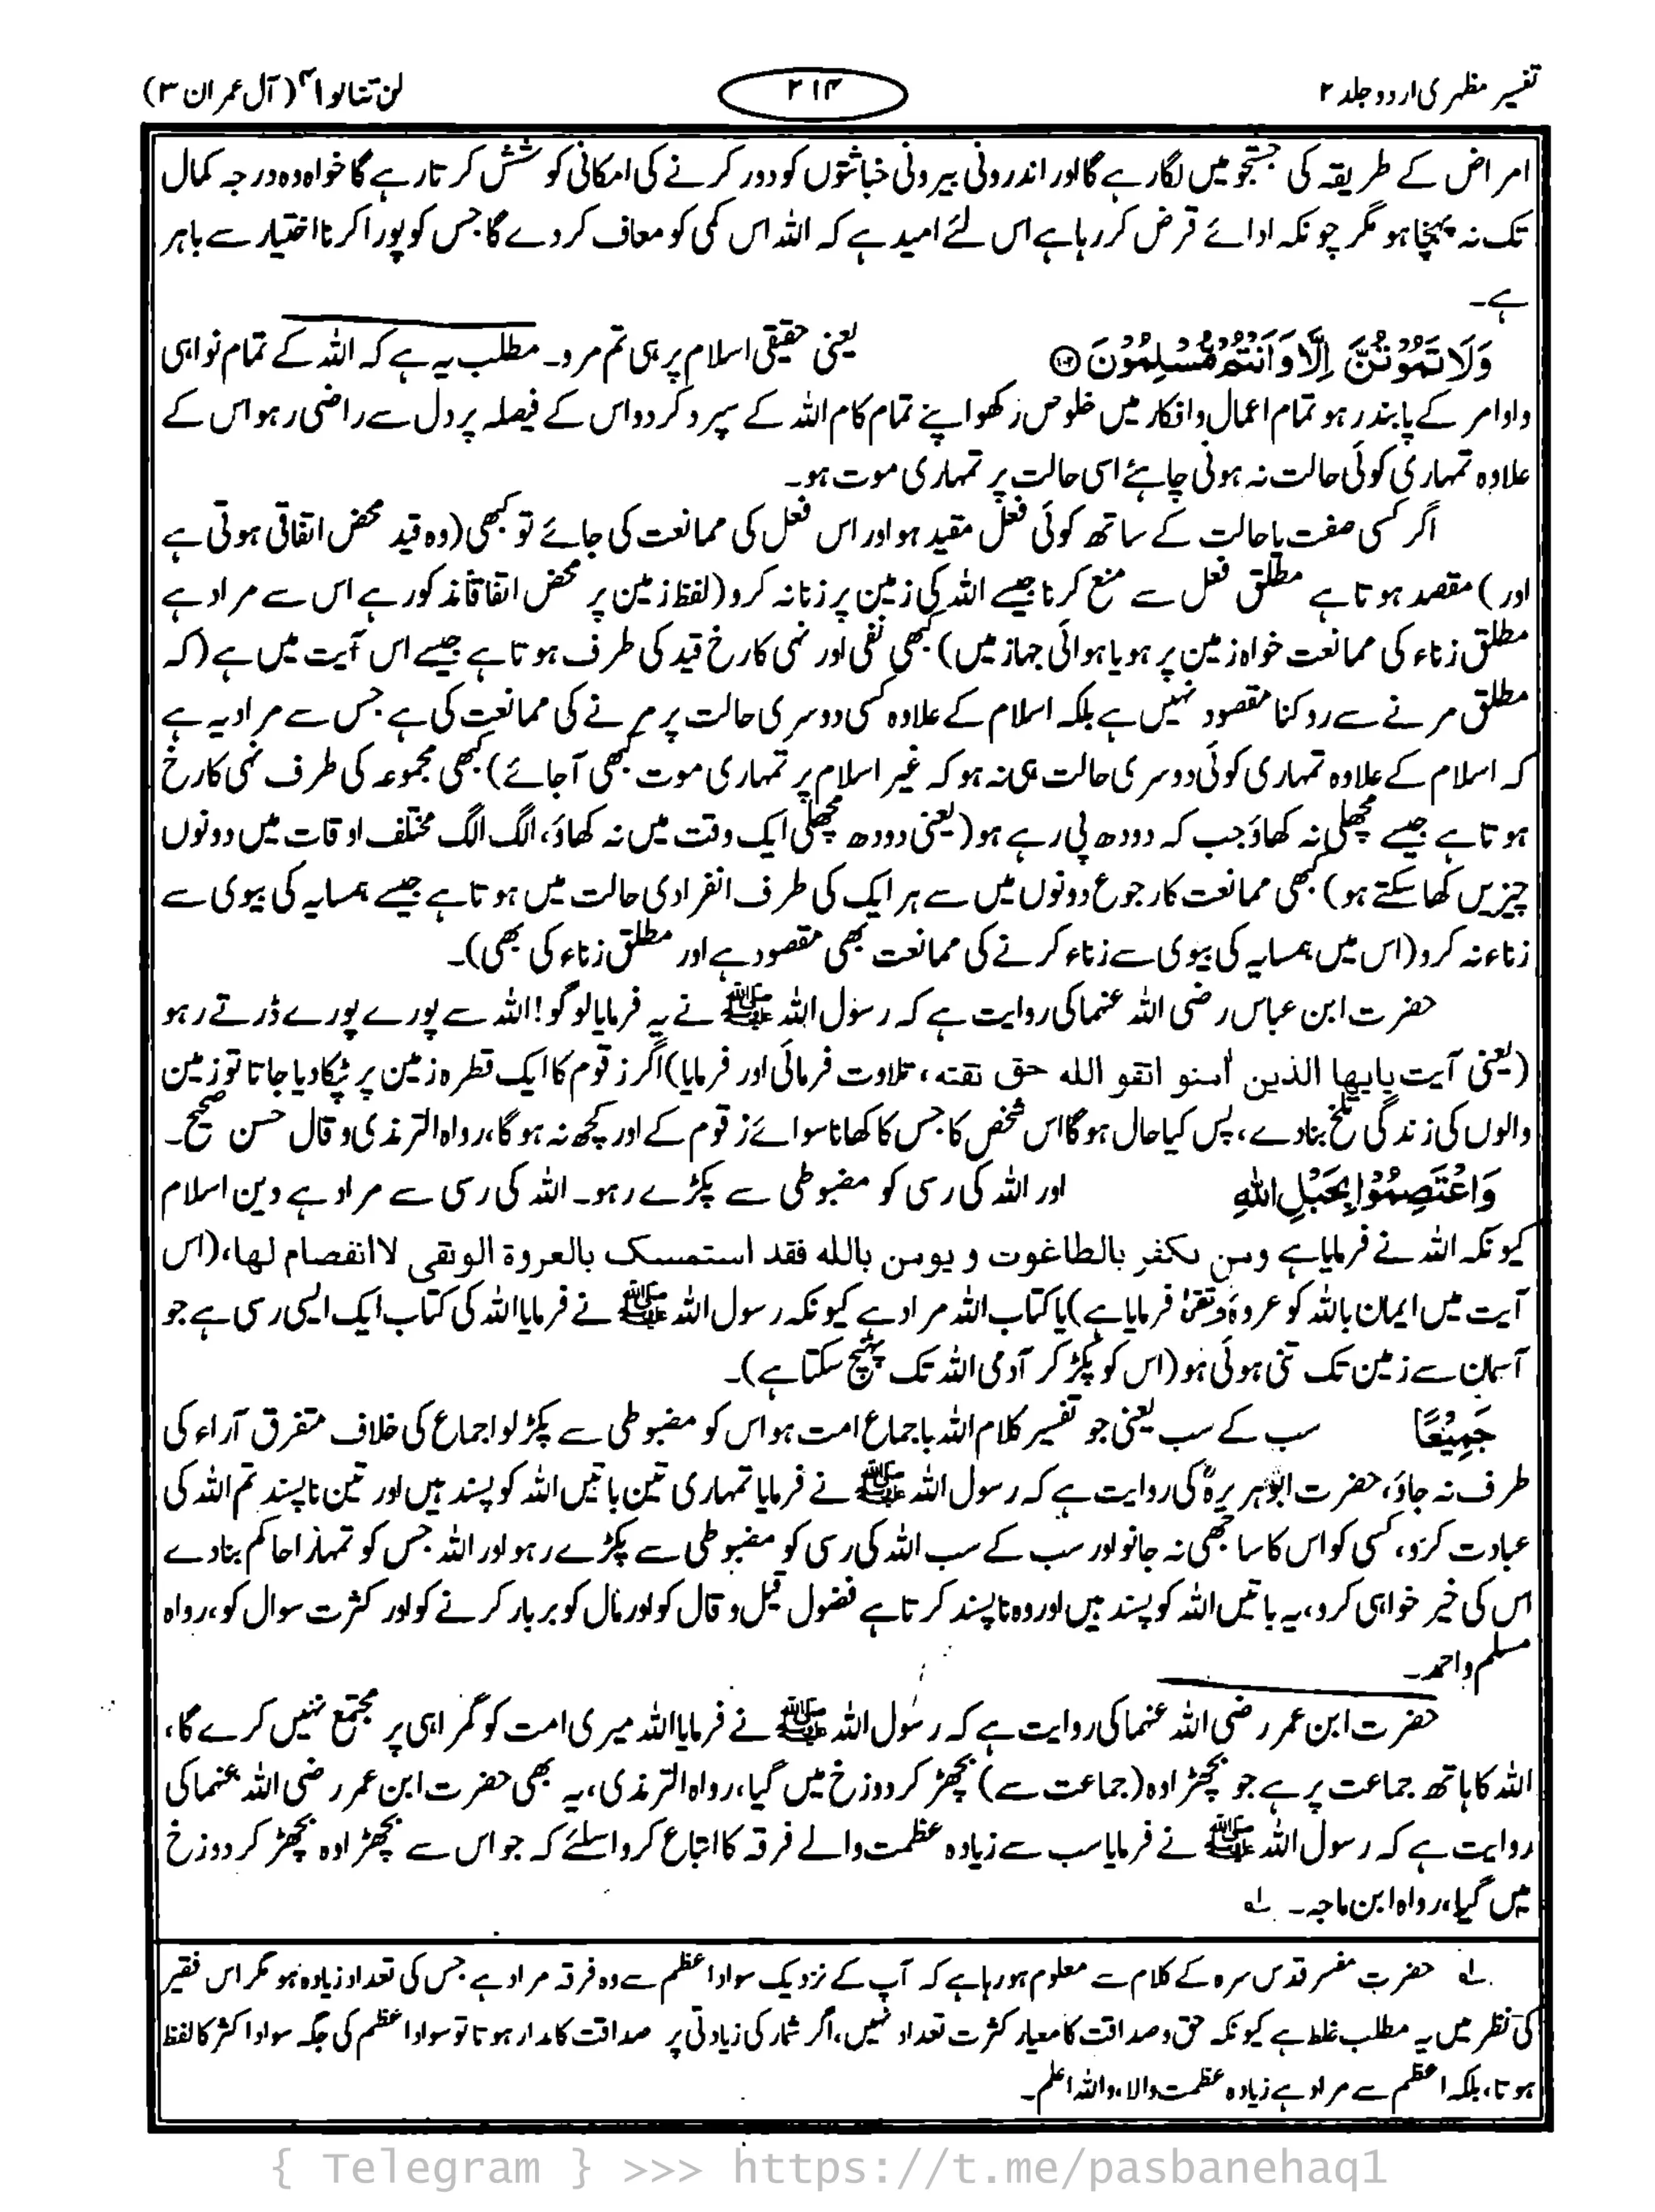 تفسیر مظہری اردو جلد ۲
۲۱۴
لن تنالوا ۴ (آل عمران ۳)
امراض کے طریقہ کی جستجو میں لگا رہے گا اور اندرونی بیرونی خباثتوں کو دور کرنے کی امکانی کوشش کرتا رہے گا خواہ وہ درجہ کمال
تک نہ پہنچا ہو مگر چونکہ ادائے قرض کر رہا ہے اس لئے امید ہے کہ اللہ اس کمی کو معاف کر دے گا جس کو پورا کرنا اختیار سے باہر
ہے۔
وَلَا تَمُوْتُنَّ اِلَّا وَاَنْتُمْ مُّسْلِمُوْنَ ﴿۱۰۲﴾ یعنی حقیقی اسلام پر ہی تم مرو۔ مطلب یہ ہے کہ اللہ کے تمام نواہی
و اوامر کے پابند رہو تمام اعمال و افکار میں خلوص رکھو اپنے تمام کام اللہ کے سپرد کر دو اس کے فیصلہ پر دل سے راضی رہو اس کے
علاوہ تمہاری کوئی حالت نہ ہونی چاہئے اسی حالت پر تمہاری موت ہو۔
اگر کسی صفت یا حالت کے ساتھ کوئی فعل مقید ہو اور اس فعل کی ممانعت کی جائے تو کبھی (وہ قید محض اتفاقی ہوتی ہے
اور) مقصد ہوتا ہے مطلق فعل سے منع کرنا جیسے اللہ کی زمین پر زنا نہ کرو (لفظ زمین پر محض اتفاقاً مذکور ہے اس سے مراد ہے
مطلق زناء کی ممانعت خواہ زمین پر ہو یا ہوائی جہاز میں) کبھی نفی اور نہی کا رخ قید کی طرف ہوتا ہے جیسے اس آیت میں ہے (کہ
مطلق مرنے سے روکنا مقصود نہیں ہے بلکہ اسلام کے علاوہ کسی دوسری حالت پر مرنے کی ممانعت کی ہے جس سے مراد یہ ہے
کہ اسلام کے علاوہ تمہاری کوئی دوسری حالت ہی نہ ہو کہ غیر اسلام پر تمہاری موت کبھی آجائے) کبھی مجموعہ کی طرف نہی کا رخ
ہوتا ہے جیسے مچھلی نہ کھاؤ جب کہ دودھ پی رہے ہو (یعنی دودھ مچھلی ایک وقت میں نہ کھاؤ، الگ الگ مختلف اوقات میں دونوں
چیزیں کھا سکتے ہو) کبھی ممانعت کا رجوع دونوں میں سے ہر ایک کی طرف انفرادی حالت میں ہوتا ہے جیسے ہمسایہ کی بیوی سے
زناء نہ کرو (اس میں ہمسایہ کی بیوی سے زناء کرنے کی ممانعت بھی مقصود ہے اور مطلق زناء کی بھی)۔
حضرت ابن عباس رضی اللہ عنہما کی روایت ہے کہ رسول اللہ ﷺ نے یہ فرمایا لوگو! اللہ سے پورے پورے ڈرتے رہو
(یعنی آیت یایھا الذین اٰمنو اتقو الله حق تقته، تلاوت فرمائی اور فرمایا) اگر زقوم کا ایک قطرہ زمین پر ٹپکا دیا جاتا تو زمین
والوں کی زندگی تلخ بنا دے، پس کیا حال ہوگا اس شخص کا جس کا کھانا سوائے زقوم کے اور کچھ نہ ہوگا، رواہ الترمذی و قال حسن صحیح۔
وَاعْتَصِمُوْا بِحَبْلِ اللهِ اور اللہ کی رسی کو مضبوطی سے پکڑے رہو۔ اللہ کی رسی سے مراد ہے دین اسلام
کیونکہ اللہ نے فرمایا ہے ومن یکفر بالطاغوت و یومن بالله فقد استمسک بالعروة الوثقی لاانفصام لها، (اس
آیت میں ایمان باللہ کو عروۂ وثقیٰ فرمایا ہے) یا کتاب اللہ مراد ہے کیونکہ رسول اللہ ﷺ نے فرمایا اللہ کی کتاب ایک ایسی رسی ہے جو
آسمان سے زمین تک تنی ہوئی ہو (اس کو پکڑ کر آدمی اللہ تک پہنچ سکتا ہے)۔
جَمِيْعًا سب کے سب یعنی جو تفسیر کلام اللہ باجماع امت ہو اس کو مضبوطی سے پکڑ لو اجماع کی خلاف متفرق آراء کی
طرف نہ جاؤ، حضرت ابوہریرہؓ کی روایت ہے کہ رسول اللہ ﷺ نے فرمایا تمہاری تین باتیں اللہ کو پسند ہیں اور تین ناپسند تم اللہ کی
عبادت کرو، کسی کو اس کا ساجھی نہ جانو اور سب کے سب اللہ کی رسی کو مضبوطی سے پکڑے رہو اور اللہ جس کو تمہارا حاکم بنا دے
اس کی خیر خواہی کرو، یہ باتیں اللہ کو پسند ہیں اور وہ ناپسند کرتا ہے فضول قیل و قال کو اور مال کو برباد کرنے کو اور کثرت سوال کو، رواہ
مسلم و احمد۔
حضرت ابن عمر رضی اللہ عنہما کی روایت ہے کہ رسول اللہ ﷺ نے فرمایا اللہ میری امت کو گمراہی پر مجتمع نہیں کرے گا،
اللہ کا ہاتھ جماعت پر ہے جو بچھڑا وہ (جماعت سے) بچھڑ کر دوزخ میں گیا، رواہ الترمذی، یہ بھی حضرت ابن عمر رضی اللہ عنہما کی
روایت ہے کہ رسول اللہ ﷺ نے فرمایا سب سے زیادہ عظمت والے فرقہ کا اتباع کرو اسلئے کہ جو اس سے بچھڑا وہ بچھڑ کر دوزخ
میں گیا، رواہ ابن ماجہ۔ ۱؎
۱؎ حضرت مفسر قدس سرہ کے کلام سے معلوم ہو رہا ہے کہ آپ کے نزدیک سواد اعظم سے وہ فرقہ مراد ہے جس کی تعداد زیادہ ہو مگر اس فقیر
کی نظر میں یہ مطلب غلط ہے کیونکہ حق و صداقت کا معیار کثرت تعداد نہیں، اگر شمار کی زیادتی پر صداقت کا مدار ہوتا تو سواد اعظم کی جگہ سواد اکثر کا لفظ
ہوتا، بلکہ اعظم سے مراد ہے زیادہ عظمت والا، واللہ اعلم۔
{ Telegram } >>> https://t.me/pasbanehaq1